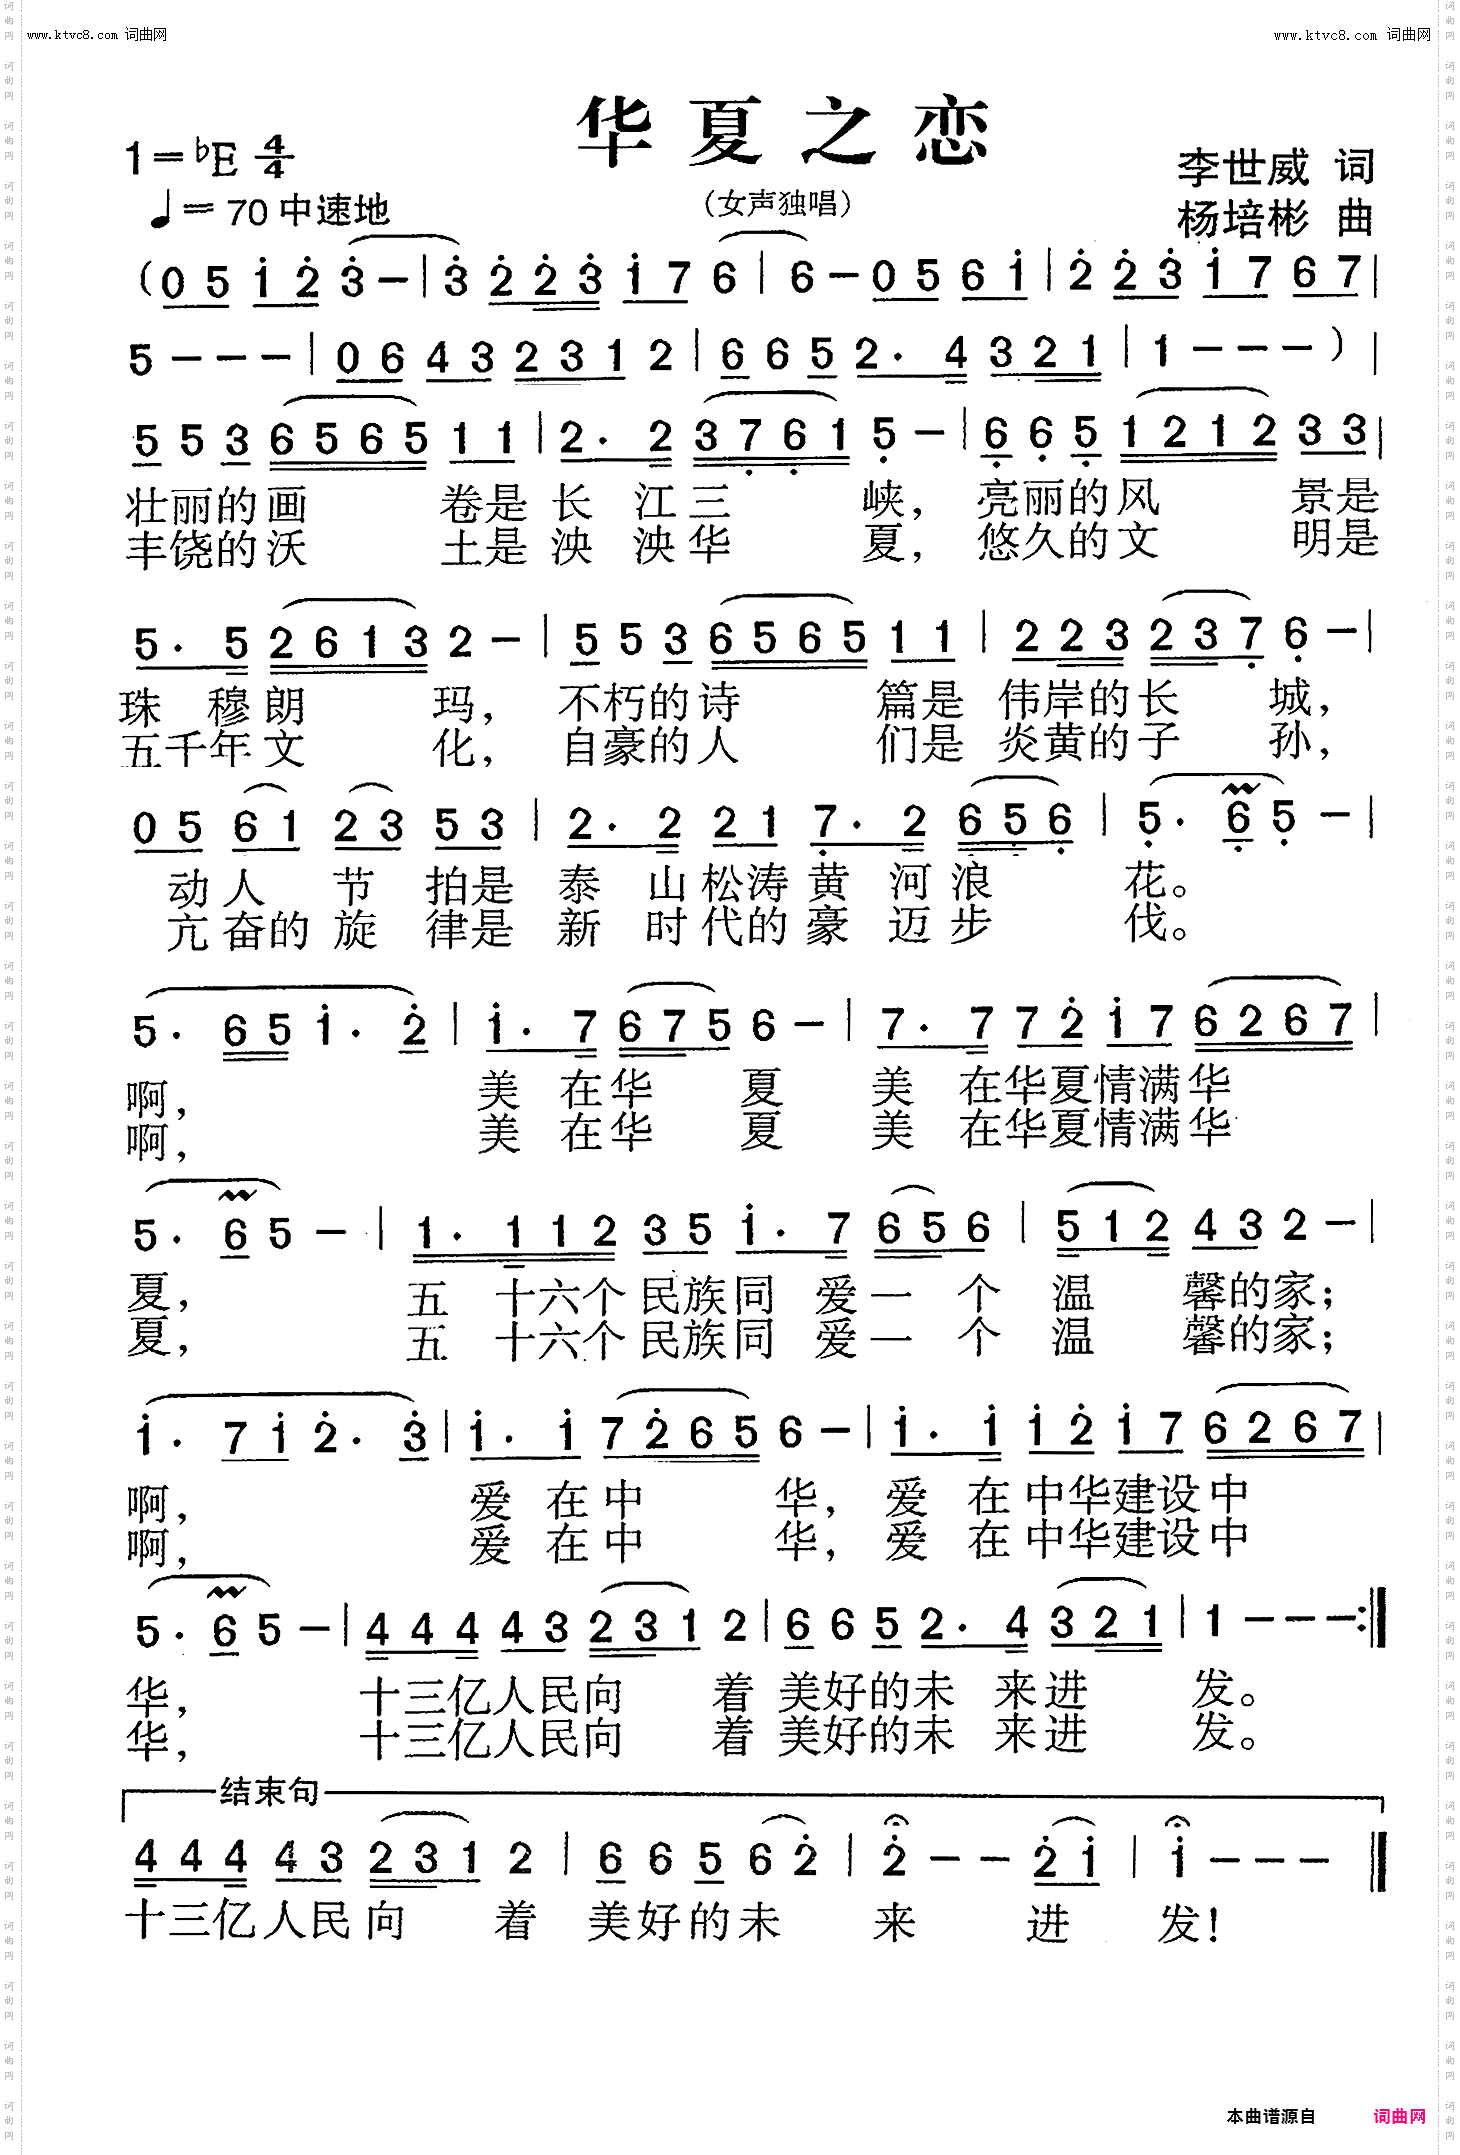 www.ktvc8.com 词曲网
www.ktvc8.com 词曲网
华夏之恋
1=♭E 4/4
♩=70中速地
（女声独唱）
李世威 词
杨培彬 曲
(0 5 1 2 3 – | 3 2 2 3 1 7 6 | 6 – 0 5 6 1 | 2 2 3 1 7 6 7 |
5 – – – | 0 6 4 3 2 3 1 2 | 6 6 5 2 · 4 3 2 1 | 1 – – – ) |
5 5 3 6 5 6 5 1 1 | 2 · 2 3 7 6 1 5 – | 6 6 5 1 2 1 2 3 3 |
壮丽的画 卷是长 江三 峡，亮丽的风 景是
丰饶的沃 土是泱 泱华 夏，悠久的文 明是
5 · 5 2 6 1 3 2 – | 5 5 3 6 5 6 5 1 1 | 2 2 3 2 3 7 6 – |
珠 穆朗 玛，不朽的诗 篇是 伟岸的长 城，
五千年文 化，自豪的人 们是 炎黄的子 孙，
0 5 6 1 2 3 5 3 | 2 · 2 2 1 7 · 2 6 5 6 | 5 · 6 5 – |
动人 节 拍是泰 山松涛黄 河浪 花。
亢奋的旋 律是新 时代的豪 迈步 伐。
5 · 6 5 1 · 2 | 1 · 7 6 7 5 6 – | 7 · 7 7 2 1 7 6 2 6 7 |
啊， 美 在华 夏 美 在华夏情满华
啊， 美 在华 夏 美 在华夏情满华
5 · 6 5 – | 1 · 1 1 2 3 5 1 · 7 6 5 6 | 5 1 2 4 3 2 – |
夏， 五 十六个民族同 爱一 个 温 馨的家；
夏， 五 十六个民族同 爱一 个 温 馨的家；
1 · 7 1 2 · 3 | 1 · 1 7 2 6 5 6 – | 1 · 1 1 2 1 7 6 2 6 7 |
啊， 爱 在中 华，爱 在中华建设中
啊， 爱 在中 华，爱 在中华建设中
5 · 6 5 – | 4 4 4 4 3 2 3 1 2 | 6 6 5 2 · 4 3 2 1 | 1 – – – :‖
华， 十三亿人民向 着 美好的未 来进 发。
华， 十三亿人民向 着 美好的未 来进 发。
结束句
4 4 4 4 3 2 3 1 2 | 6 6 5 6 2 | 2 – – 2 1 | 1 – – – ‖
十三亿人民向 着 美好的未 来 进 发！
本曲谱源自 词曲网